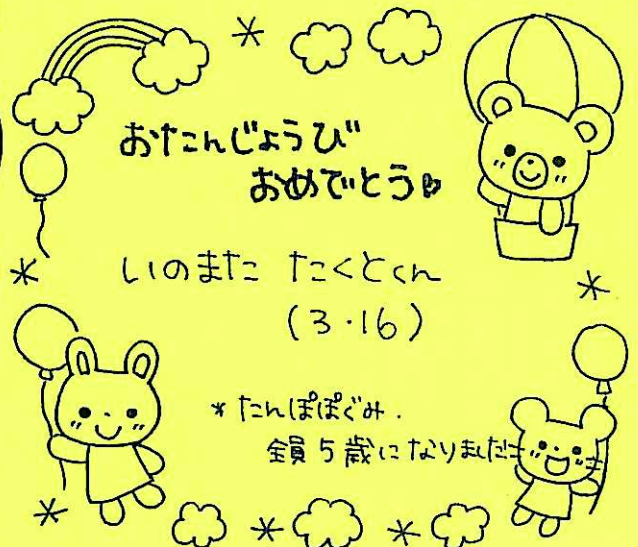 おたんじょうび
おめでとう
いのまた たくとくん
(3・16)
* たんぽぽぐみ.
全員5歳になりました